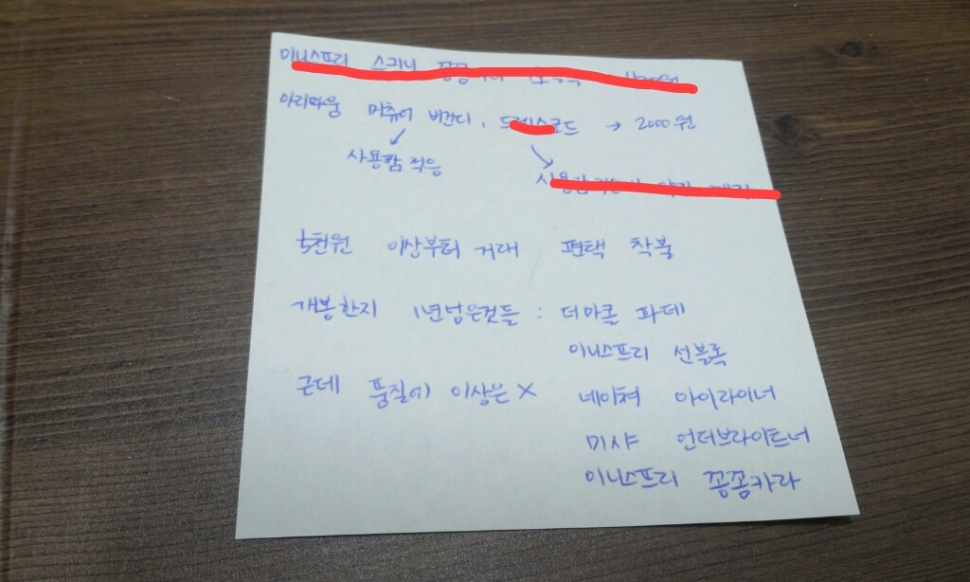 이니스프리 스키니
아리따움 머츄어 버건디, 드레스코드 → 2000원
사용감 적음
5천원 이상부터 거래 편택 착불
개봉한지 1년넘은것들 : 더마콜 파데
이니스프리 선블록
근데 품질에 이상은 X 네이쳐 아이라이너
미샤 언더브라이트너
이니스프리 꼼꼼카라